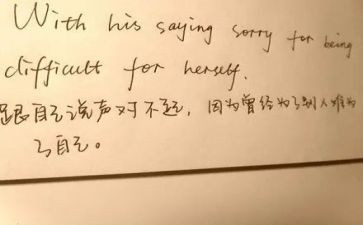 With his saying sorry for being
difficult for herself.
跟自己说声对不起，因为曾经为了别人难为
了自己。